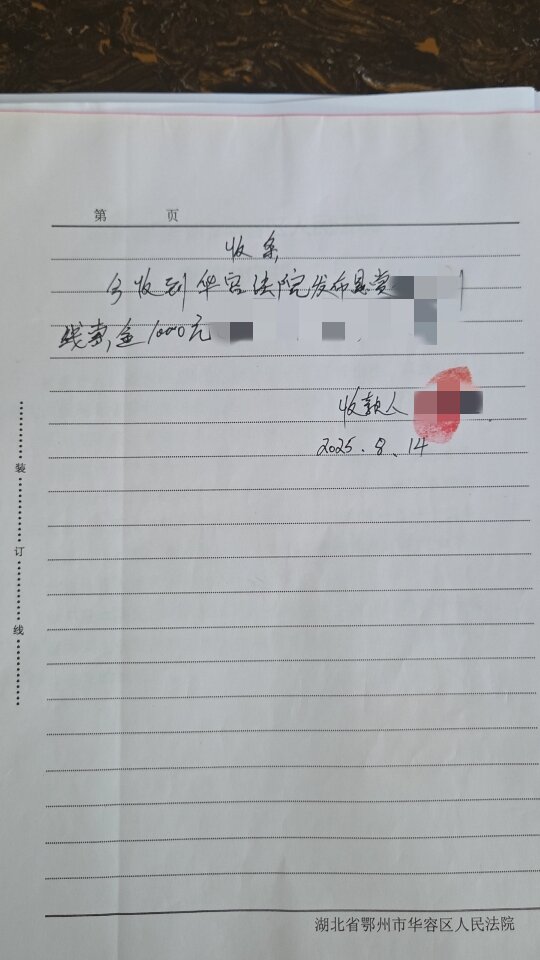 第 页
收条
今收到华容法院发布悬赏
线索金1000元
收款人
2025.8.14
装
订
线
湖北省鄂州市华容区人民法院